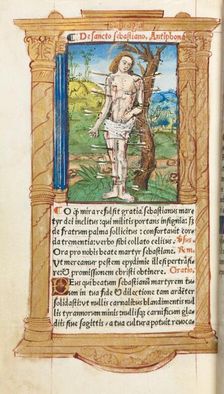 De sancto sebastiano. Antiphona
O q̃ mira refulsit gratia Sebastianus mar
tyr dei inclitus: qui militis portans insignia: s;
de fratrum palma sollicitus: confortauit cor
da trementia: verbo sibi collato celitus. v̄sus.
Ora pro nobis beate martyr Sebastiane. Rem.
Ut mereamur pestem epydimie illesi pertrãsi
re: & promissionem christi obtinere. Oratio.
Deus qui beatum sebastianũ martyrem tu
um in tua fide & dilectione tam ardẽter
solidasti: vt nullis carnalibus blandimentis nul
lis tyrannorum minis nullisq; carnificum gla
diis siue sagittis: a tua cultura potuit reuoca